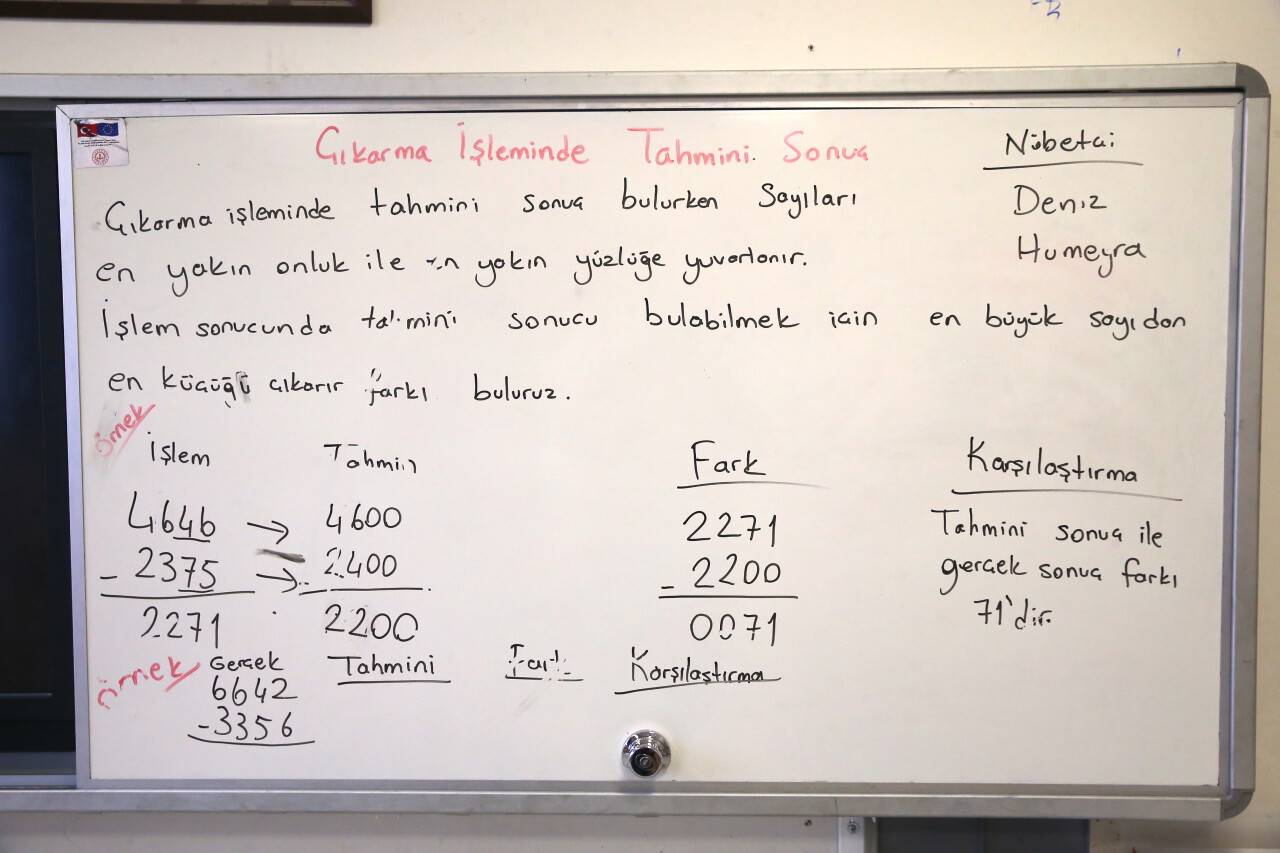 Çıkarma İşleminde Tahmini Sonuç
Nöbetçi
Deniz
Humeyra
Çıkarma işleminde tahmini sonuç bulurken sayıları
en yakın onluk ile en yakın yüzlüğe yuvarlanır.
İşlem sonucunda tahmini sonucu bulabilmek için en büyük sayıdan
en küçüğü çıkarır farkı buluruz.
örnek
İşlem Tahmin Fark Karşılaştırma
4646 → 4600 2271 Tahmini sonuç ile
- 2375 → - 2400 - 2200 gerçek sonuç farkı
2271 2200 0071 71'dir.
örnek
Gerçek Tahmini Fark Karşılaştırma
6642
- 3356